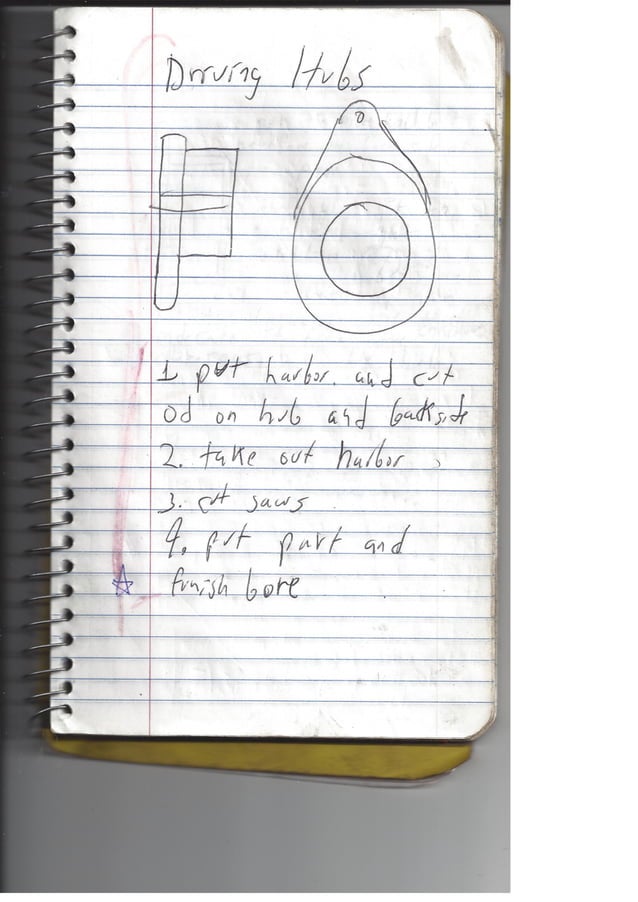 Driving Hubs
1 put harbor. and cut
od on hub and backside
2. take out harbor
3. cut saws
4. put part and
finish bore